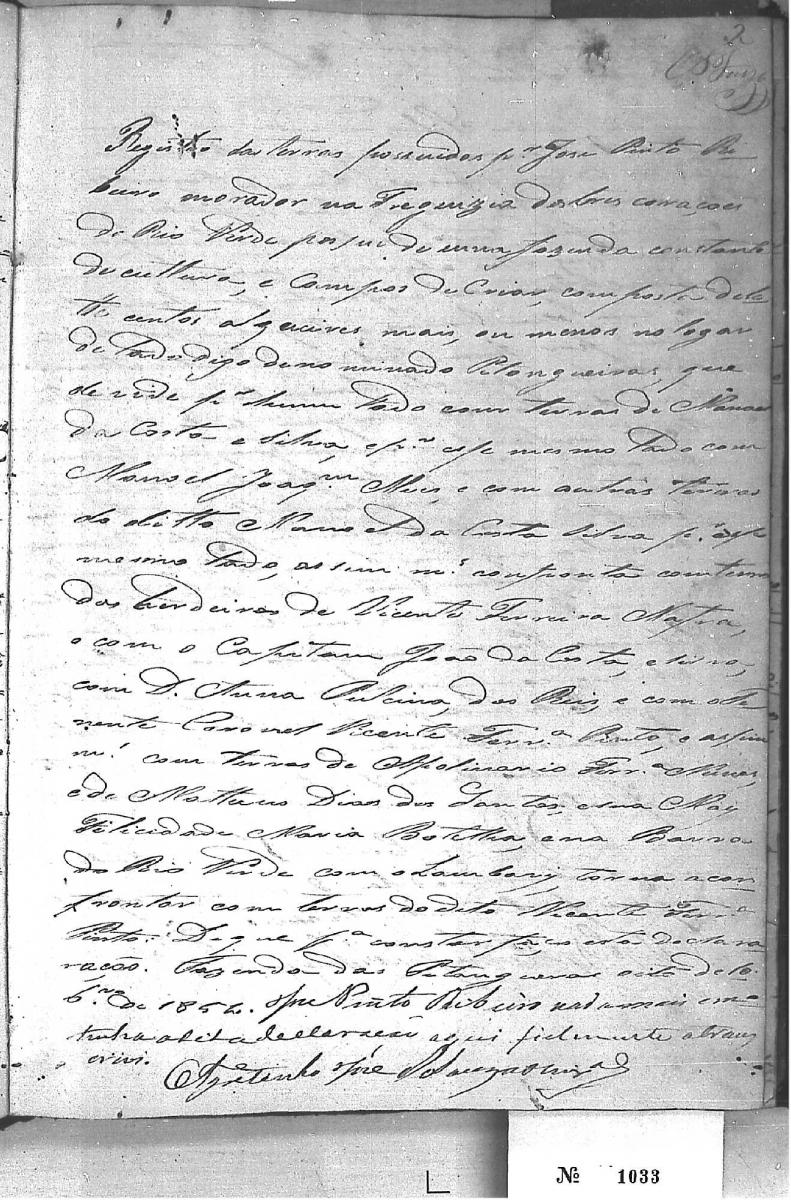 2
Registro das terras possuidas p.r Jose Pinto Ri
beiro morador na Freguizia dos tres coraçoes
do Rio Verde possuidor de uma fazenda constante
de cultura, e Campos de Criar, composta de
centos alqueires mais, ou menos no logar
de lado digo denominado Pitangueiras, que
devide p.r hum lado com terras de Manoel
da Costa e Silva, e p.r esse mesmo lado com
Manoel Joaq.m Alves, e com outras terras
do ditto Manoel da Costa Silva p.r esse
mesmo lado, assim m.s confronta com terras
dos herdeiros de Vicente Ferreira Mafra,
e com o Capitam João da Costa, e Silva,
com D. Anna Pulcina dos Reis, e com o Te
nente Coronel Vicente Ferr.a Pinto, e assim
m.s com terras de Apolinario Ferr.a Neves,
e de Matheus Dias dos Santos, e sua May
Felicidade Maria Botelha, e na Barra
do Rio Verde com o Lambary, torna a con
frontar com terras do dito Vicente Ferr.a
Pinto. De que p.a constar faço esta declara
ração. Fazenda das Pitangueiras oito de
b.ro de 1854. Jose Pinto Ribeiro nada mais con
tinha a dita declaração aqui fielmente a trans
crivi.
José
Nº 1033